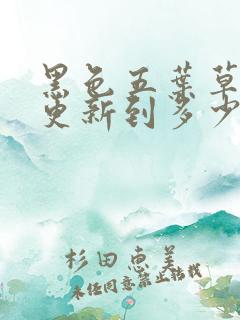 黑色五叶草
更新到多少
杉田惠美
未经同意禁止转载